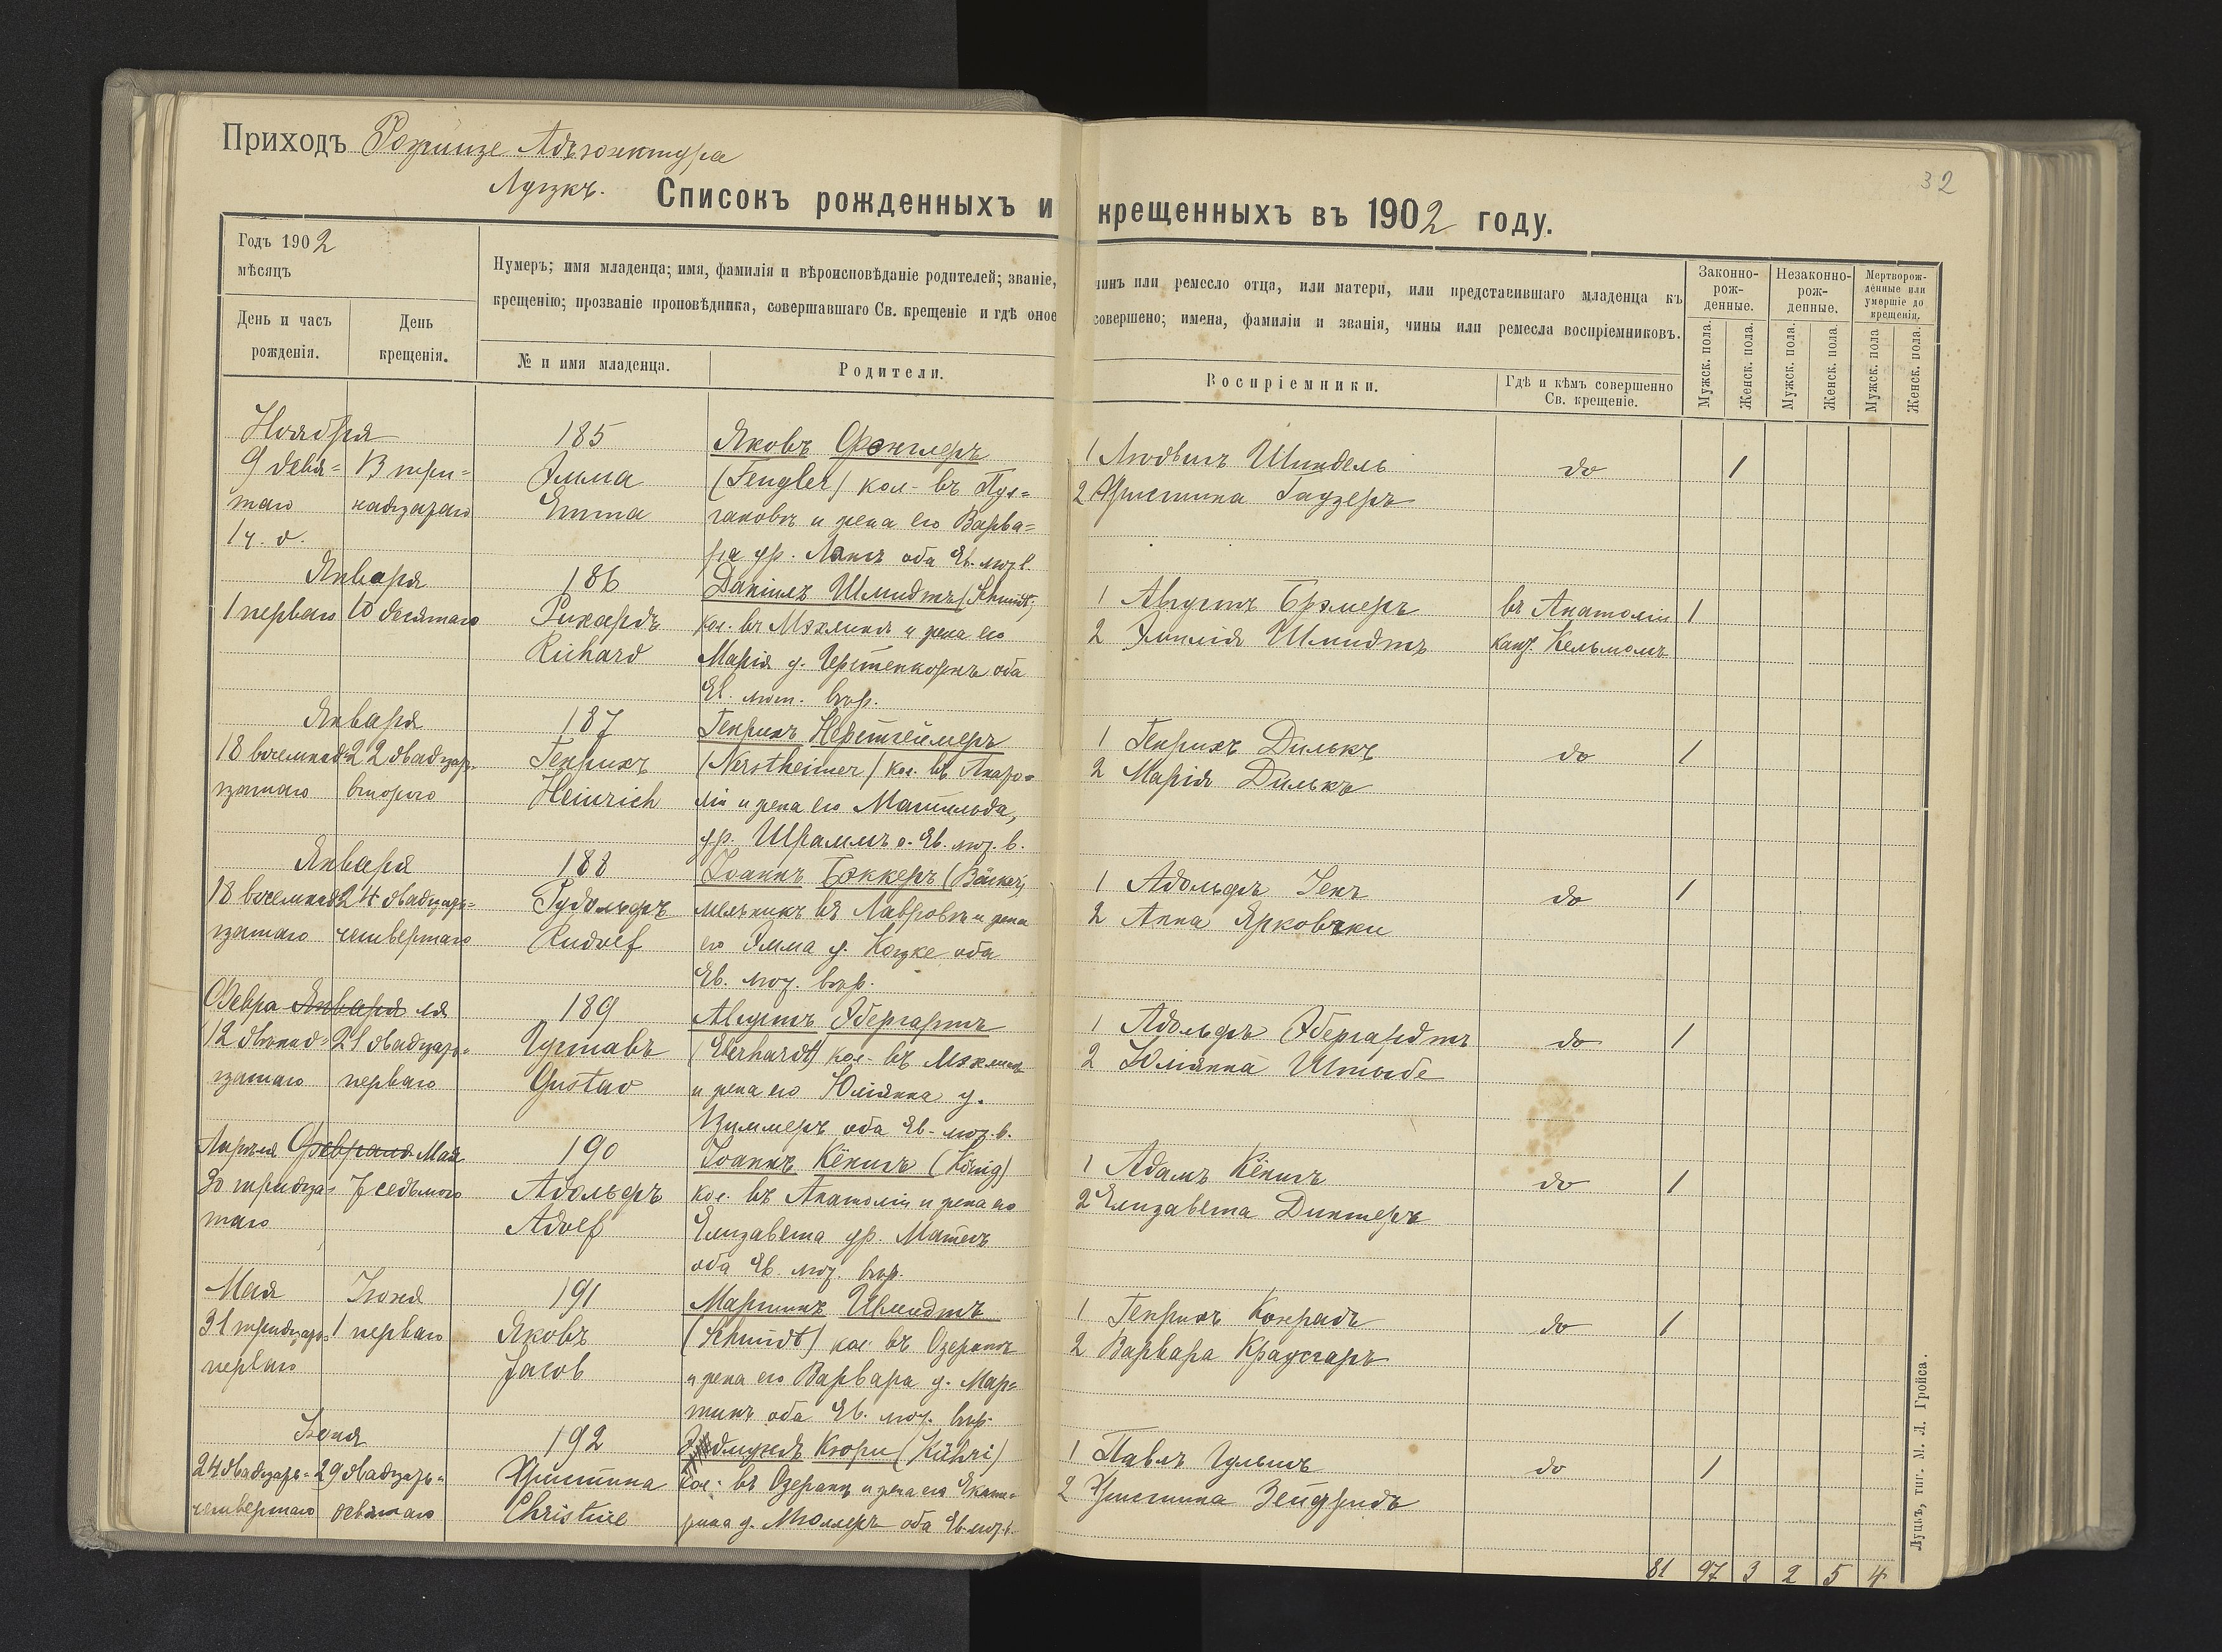 Приходъ Рожище Адъюнктура
Луцкъ.
32
Списокъ рожденныхъ и крещенныхъ въ 1902 году.
Годъ 1902
мѣсяцъ
День и часъ рожденія.
День крещенія.
Нумеръ; имя младенца; имя, фамилія и вѣроисповѣданіе родителей; званіе, чинъ или ремесло отца, или матери, или представившаго младенца къ
крещенію; прозваніе проповѣдника, совершавшаго Св. крещеніе и гдѣ оное совершено; имена, фамиліи и званія, чины или ремесла воспріемниковъ.
№ и имя младенца.
Родители.
Воспріемники.
Гдѣ и кѣмъ совершенно
Св. крещеніе.
Законно-
рож-
денные.
Незаконно-
рож-
денные.
Мертворож-
денные или
умершіе до
крещенія.
Мужск. пола.
Женск. пола.
Мужск. пола.
Женск. пола.
Мужск. пола
Женск. пола.
Ноября
9 девя=
таго
1 ч. д.
13 три=
надцатаго
185
Эмма
Emma
Яковъ Фэнглеръ
(Fengler) кол. въ Пул=
гановѣ и жена его Варва=
ра ур. Лангъ оба Ев. лют. в.
1 Людвигъ Шиндель
2 Христина Гаузеръ
do
1
Января
1 перваго
10 десятаго
186
Рихардъ
Richard
Даніилъ Шмидтъ (Schmidt)
кол. въ Мэхлинѣ и жена его
Марія у. Герстенкорнъ оба
Ев. лют. вѣр.
1 Августъ Брэмеръ
2 Эмилія Шмидтъ
въ Анатоліи
кант. Кельмомъ
1
Января
18 восемнад=
цатаго
22 двадцать
второго
187
Генрихъ
Heinrich
Генрихъ Нерстгеймеръ
(Nerstheimer) кол. въ Анато=
ліи и жена его Матильда,
ур. Шраммъ о. Ев. лют. в.
1 Генрихъ Дилькъ
2 Марія Дилькъ
do
1
Января
18 восемнад=
цатаго
24 двадцать=
четвертаго
188
Рудольфъ
Rudolf
Іоаннъ Бэккеръ (Bäcker)
мельникъ въ Лавровѣ и жена
его Эмма у. Коцке оба
Ев. лют. вѣр.
1 Адольфъ Генъ
2 Анна Ярковски
do
1
Февра Января ля
12 двѣнад=
цатаго
21 двадцать=
перваго
189
Густавъ
Gustav
Августъ Эбергартъ
(Eberhardt) кол. въ Мэхлинѣ
и жена его Юліянна у.
Циммеръ оба Ев. лют. в.
1 Адольфъ Эбергардтъ
2 Юліянна Штыбе
do
1
Апрѣля Февраля Мая
30 тридца=
таго
7 седьмого
190
Адольфъ
Adolf
Іоаннъ Кёнигъ (König)
кол. въ Анатоліи и жена его
Елизавета ур. Матесъ
оба Ев. лют. вѣр.
1 Адамъ Кёнигъ
2 Елизавета Динтеръ
do
1
Мая
31 тридцать=
перваго
Іюня
1 перваго
191
Яковъ
Jacob
Мартинъ Шмидтъ
(Schmidt) кол. въ Озеранѣ
и жена его Варвара у. Мар=
тинъ оба Ев. лют. вѣр.
1 Генрихъ Конрадъ
2 Варвара Краусгаръ
do
1
Іюня
24 двадцать=
четвертаго
29 двадцать=
девятаго
192
Христина
Christine
Эдмундъ Кюри (Kühri)
кол. въ Озеранѣ и жена его Екате=
рина у. Мюллеръ оба Ев. лют. в.
1 Павлъ Гульшъ
2 Христина Зейфридъ
do
1
81 97 3 2 5 4
Луцкъ, тип. М. Л. Гройса.